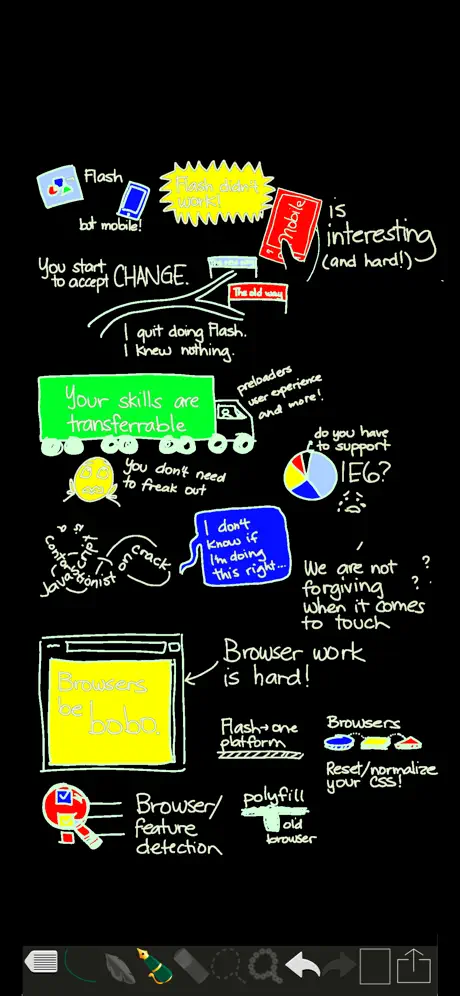 Flash
but mobile!
Flash didn't
work!
Mobile
is
interesting
(and hard!)
You start
to accept CHANGE.
The old way
I quit doing Flash.
I knew nothing.
Your skills are
transferrable
preloaders
user experience
and more!
You don't need
to freak out
do you have
to support
IE6?
Javascript is a
contortionist
on crack
I don't
know if
I'm doing
this right...
We are not
forgiving
when it comes
to touch
? ?
?
Browsers
be
bobo.
Browser work
is hard!
Flash→one
platform
Browsers
Reset/normalize
your CSS!
Browser/
feature
detection
polyfill
old
browser